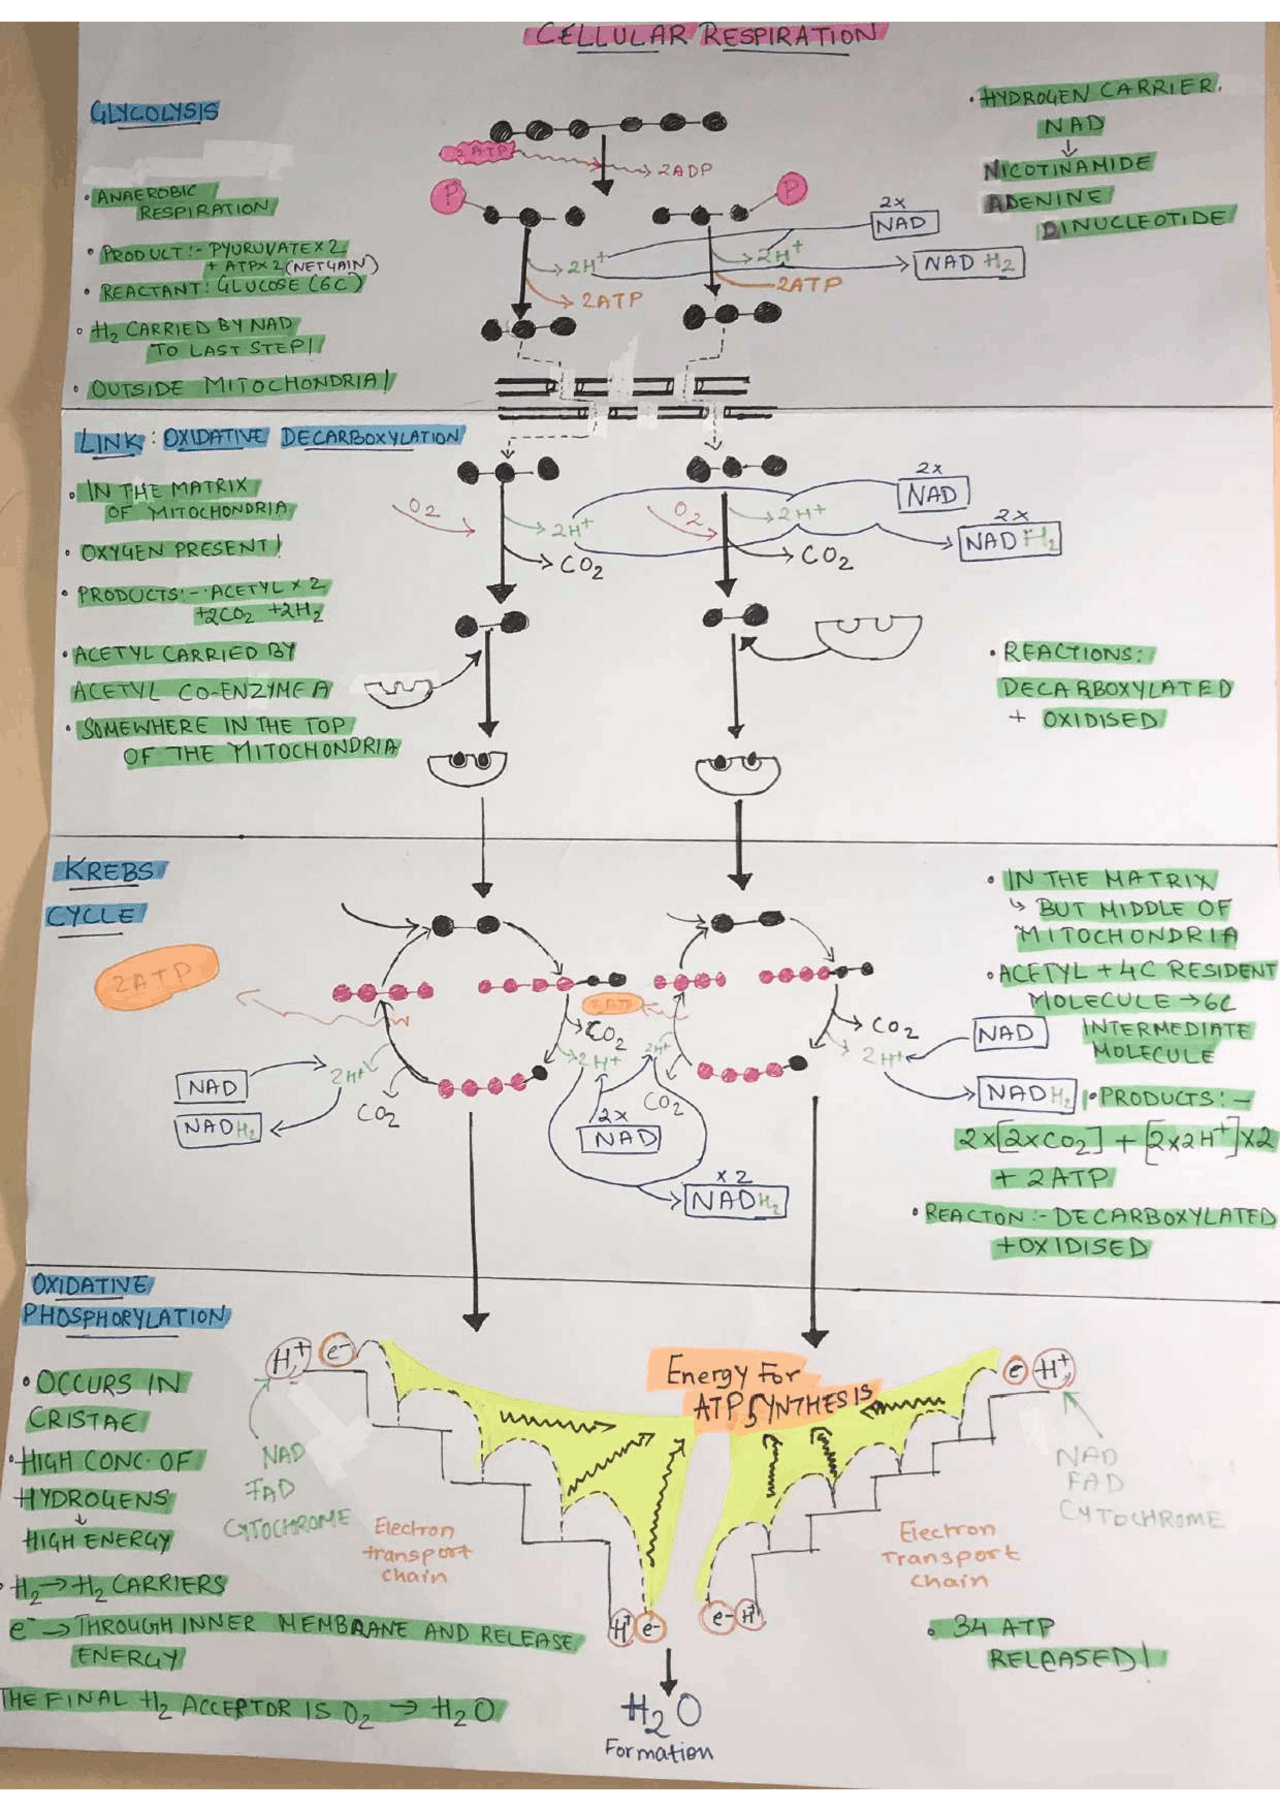 CELLULAR RESPIRATION
GLYCOLYSIS
• ANAEROBIC
RESPIRATION
• PRODUCT:- PYURUVATE X 2
+ ATP X 2 (NET GAIN)
• REACTANT: GLUCOSE (6C)
• H2 CARRIED BY NAD
TO LAST STEP!
• OUTSIDE MITOCHONDRIA!
2 ATP
2ADP
P
P
2H+
2H+
2ATP
2ATP
2x
NAD
NAD H2
• HYDROGEN CARRIER.
NAD
↓
NICOTINAMIDE
ADENINE
DINUCLEOTIDE
LINK: OXIDATIVE DECARBOXYLATION
• IN THE MATRIX
OF MITOCHONDRIA
• OXYGEN PRESENT!
• PRODUCTS:- ACETYL X 2
+2CO2 +2H2
• ACETYL CARRIED BY
ACETYL CO-ENZYME A
• SOMEWHERE IN THE TOP
OF THE MITOCHONDRIA
O2
2H+
CO2
O2
2H+
CO2
2x
NAD
2x
NAD H2
• REACTIONS:
DECARBOXYLATED
+ OXIDISED
KREBS
CYCLE
2ATP
2ATP
CO2
2H+
2H+
2H+
CO2
CO2
NAD
NADH2
2x
NAD
x2
NADH2
CO2
2H+
NAD
NADH2
• IN THE MATRIX
↳ BUT MIDDLE OF
MITOCHONDRIA
• ACETYL + 4C RESIDENT
MOLECULE → 6C
INTERMEDIATE
MOLECULE
• PRODUCTS:-
2x[2xCO2] + [2x2H+]x2
+ 2ATP
• REACTON:- DECARBOXYLATED
+OXIDISED
OXIDATIVE
PHOSPHORYLATION
• OCCURS IN
CRISTAE
• HIGH CONC. OF
HYDROGENS
↓
HIGH ENERGY
• H2 → H2 CARRIERS
e- → THROUGH INNER MEMBRANE AND RELEASE
ENERGY
THE FINAL H2 ACCEPTOR IS O2 → H2O
H+ e-
NAD
FAD
CYTOCHROME
Electron
transport
chain
Energy For
ATP SYNTHESIS
e H+
NAD
FAD
CYTOCHROME
Electron
Transport
chain
H+ e-
e- H+
• 34 ATP
RELEASED!
H2O
Formation